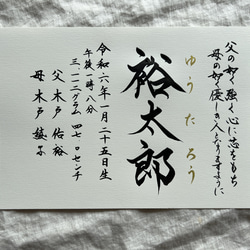 父の如く強く心に志をもち
母の如く優しき人となりますように
ゆうたろう
裕太郎
令和六年一月二十五日生
午後一時八分
三、一二二グラム 四七、〇センチ
父 木戸 佑裕
母 木戸 綾子